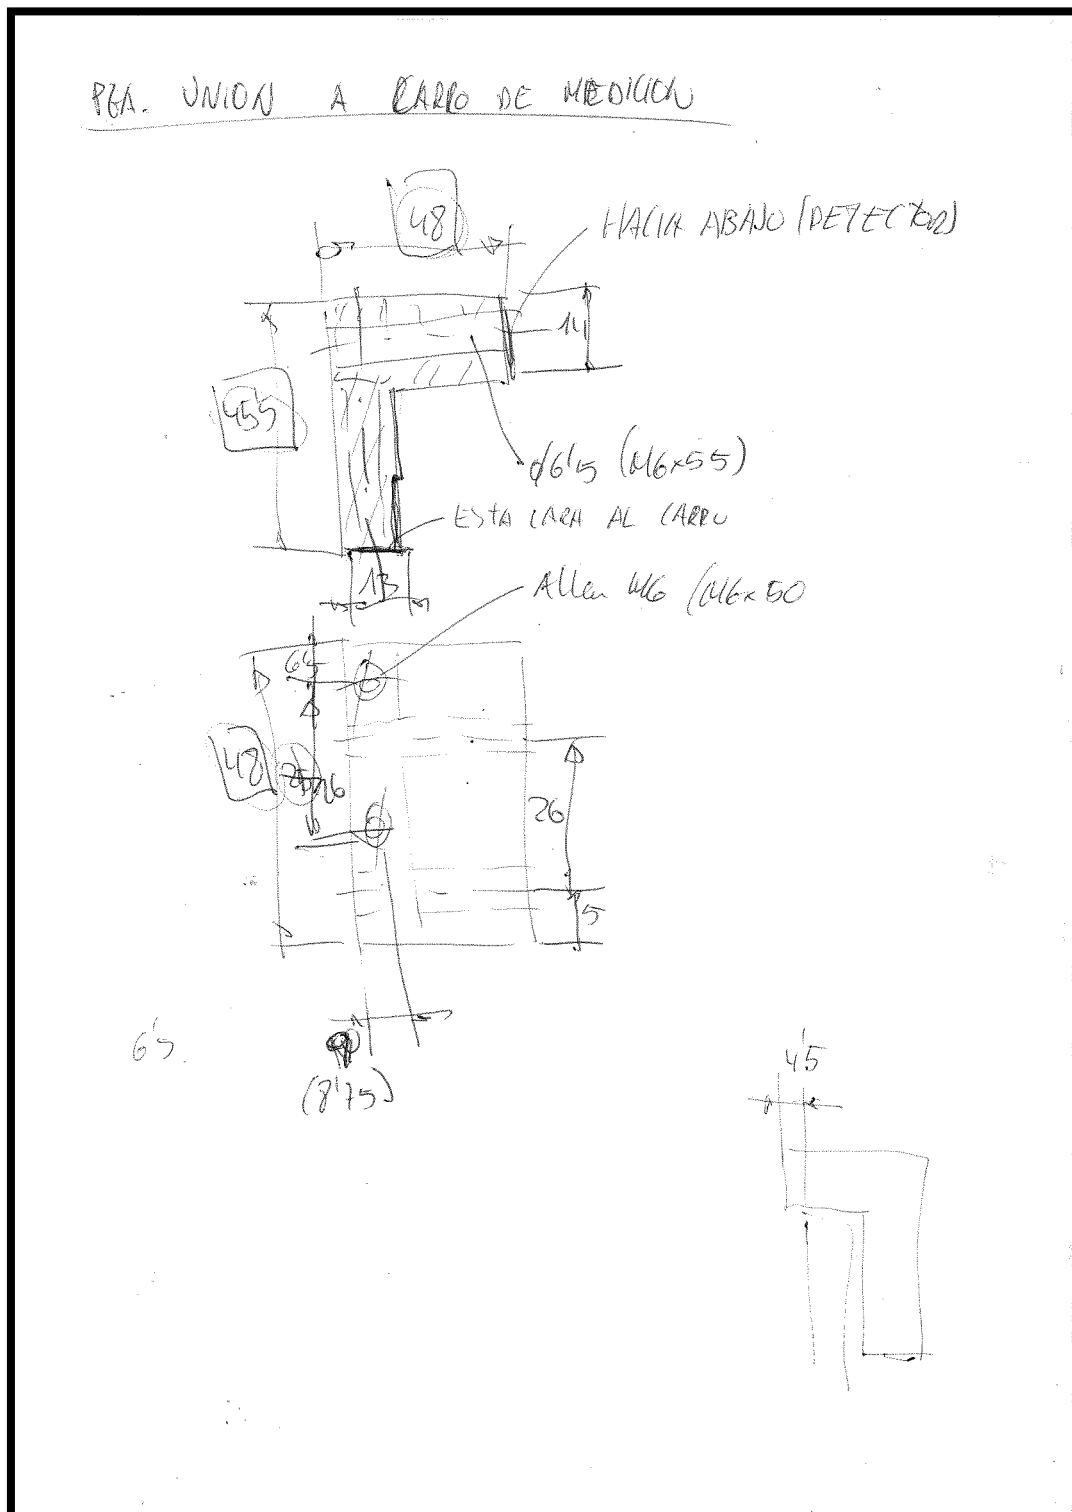 PZA. UNION A CARRO DE MEDICION
48
HACIA ABAJO (DETECTOR)
14
45'5
Ø6'5 (M6x55)
ESTA CARA AL CARRO
13
Allen M6 (M6x50
6'5
48
26
26
5
6'5
(8'75)
4'5